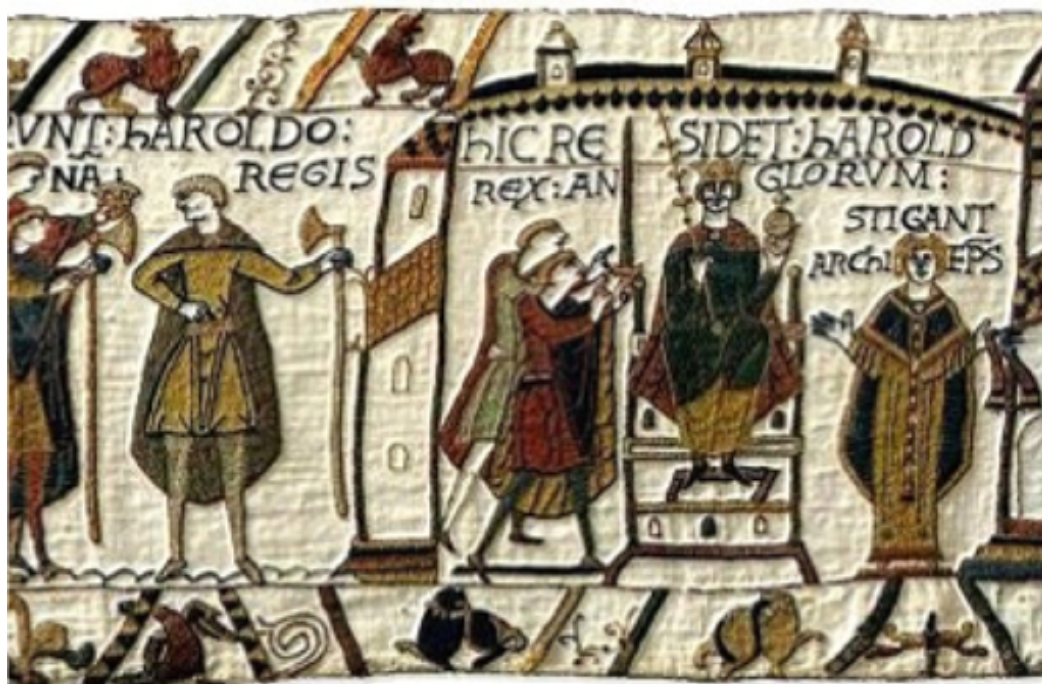 VNT:hAROLDO:
NĀ: REGIS
hIC RE SIDET:hAROLD
REX:AN GLORVM:
STIGANT
ARChI EP̄S